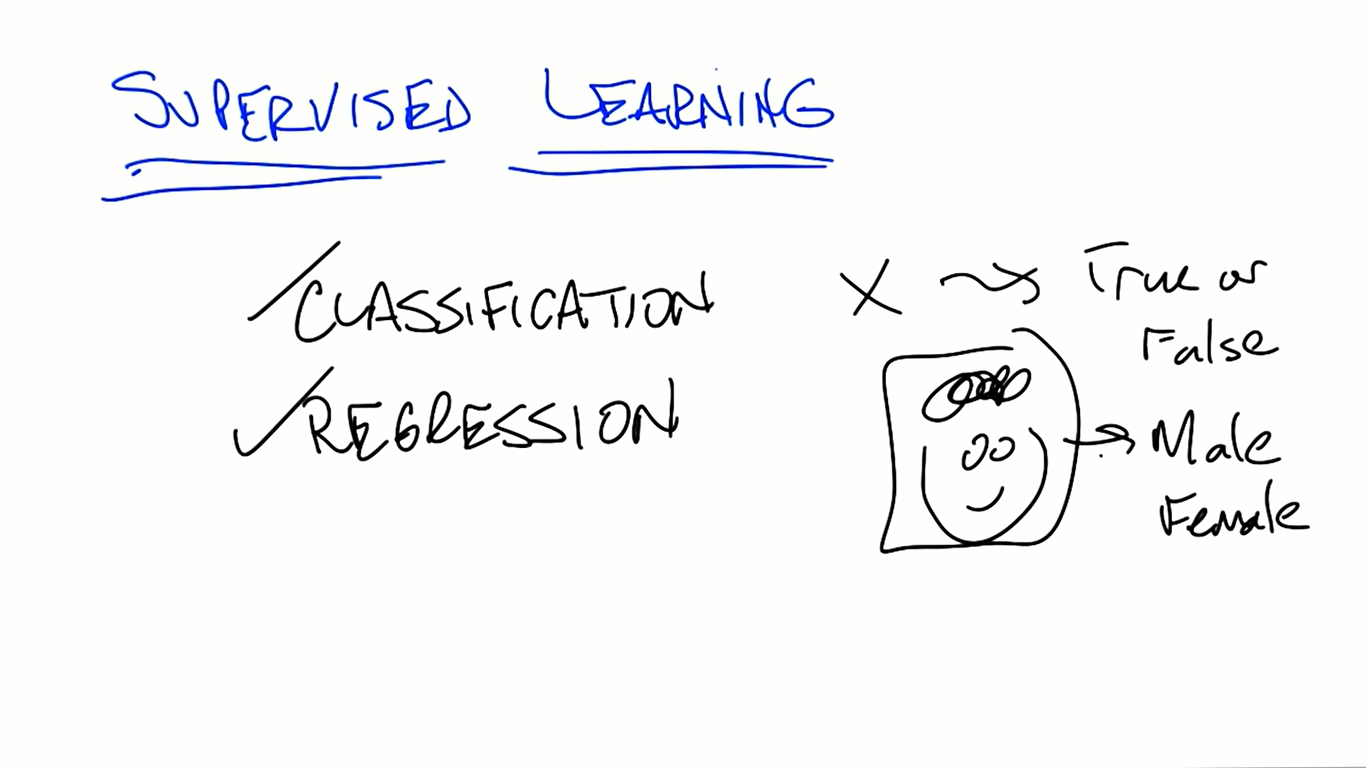 SUPERVISED LEARNING
CLASSIFICATION
REGRESSION
X → True or
False
→ Male
Female